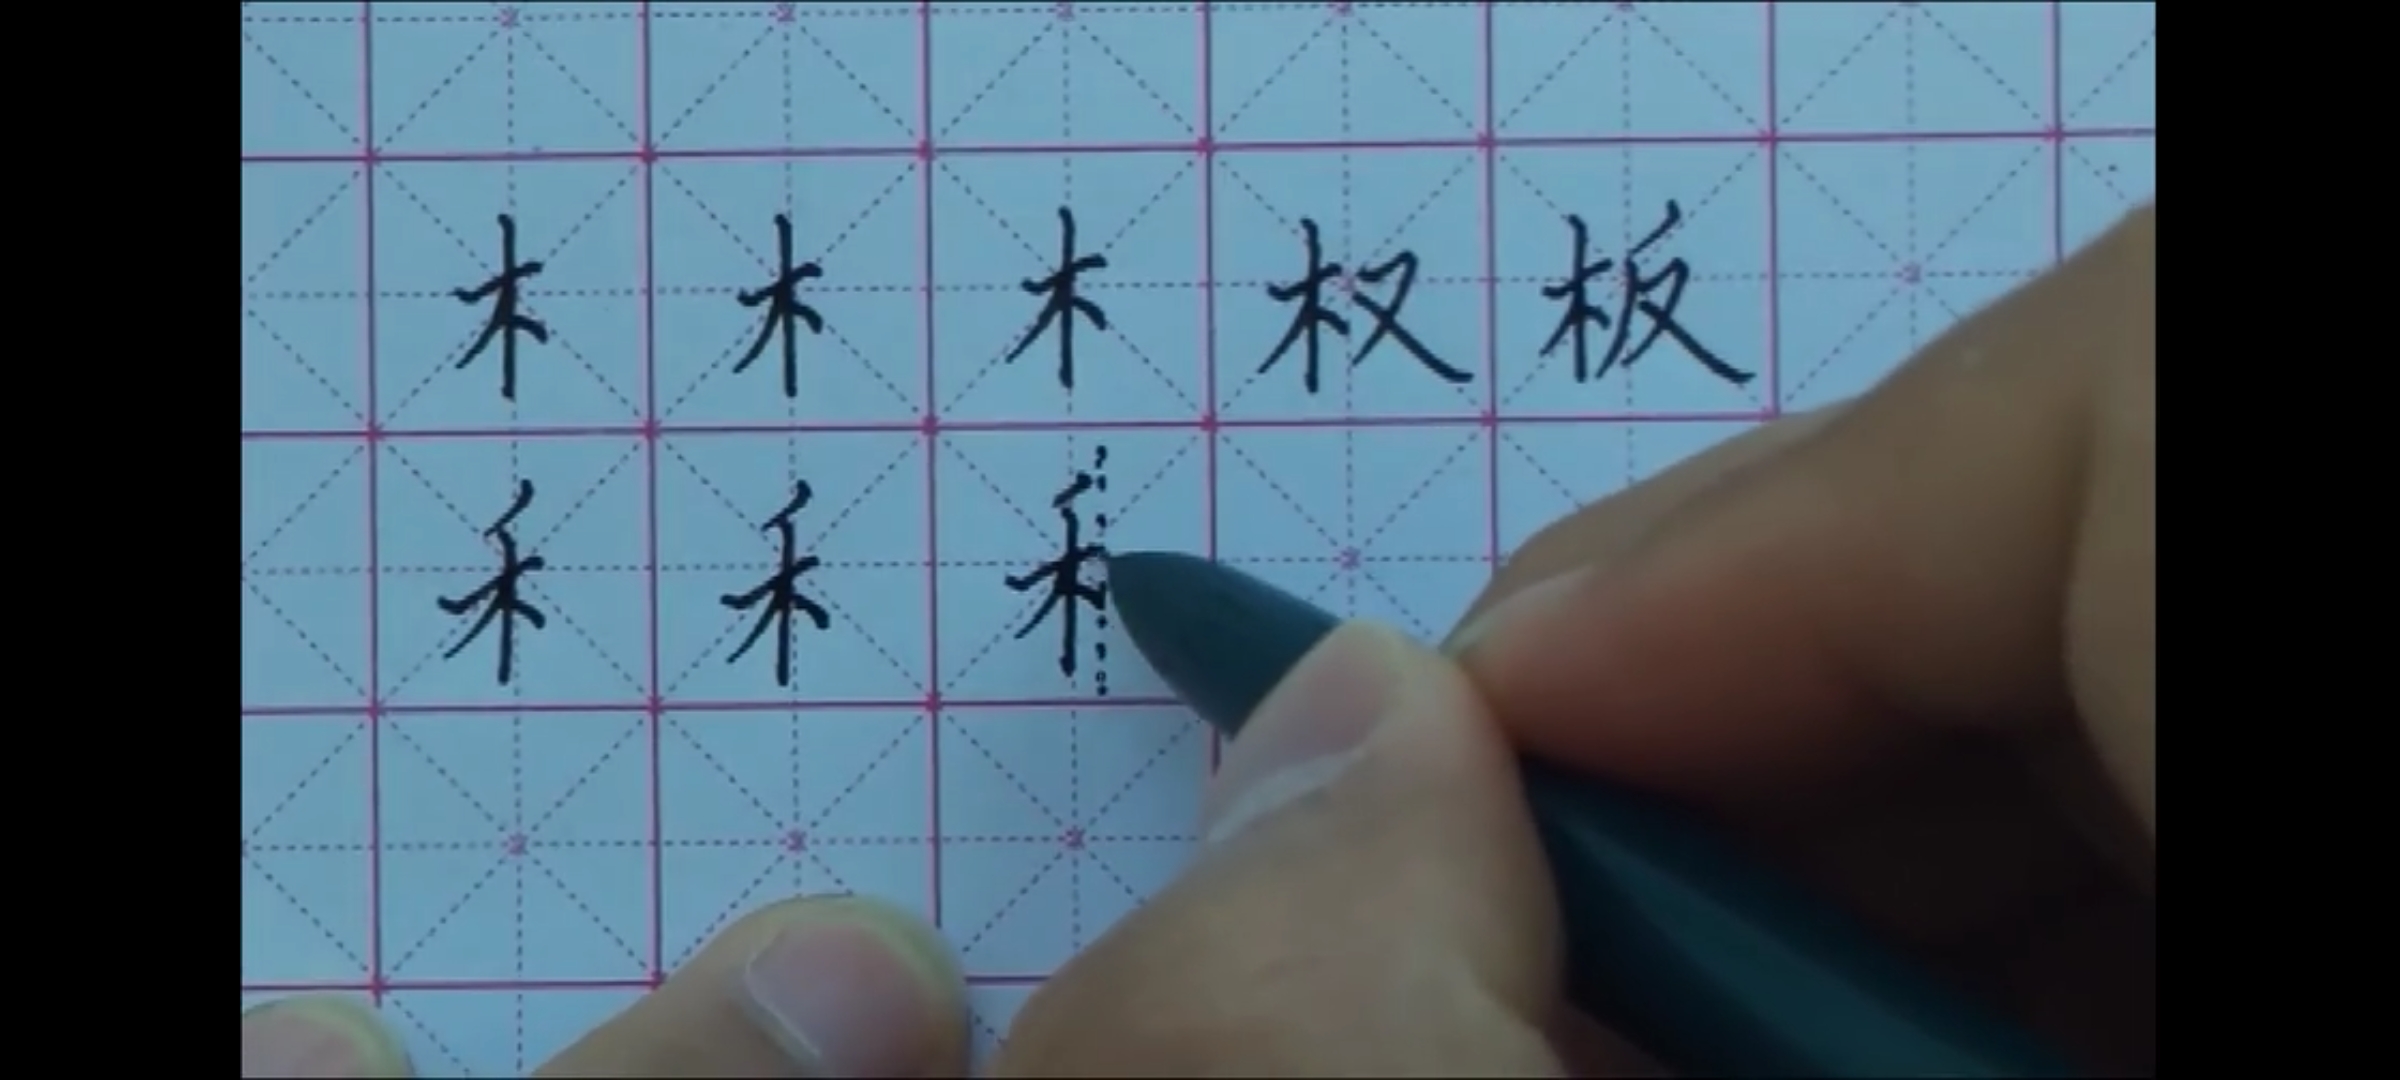 木 木 木 权 板
禾 禾 禾